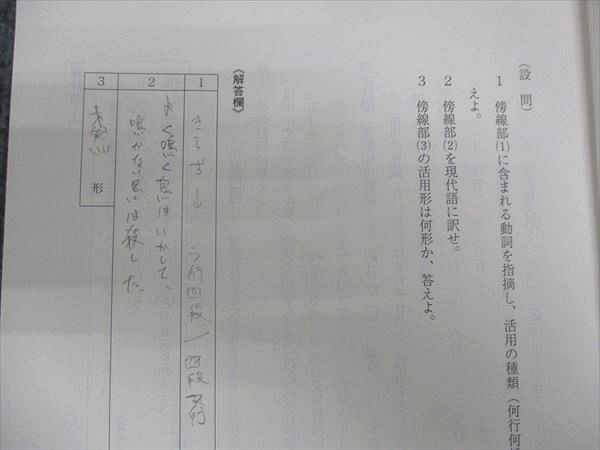 (設問)
1 傍線部(1)に含まれる動詞を指摘し、活用の種類(何行何
えよ。
2 傍線部(2)を現代語に訳せ。
3 傍線部(3)の活用形は何形か、答えよ。
〈解答欄〉
1
ラ行四段 四段
2
よく鳴く鳥はいかして、
鳴かない鳥は殺した。
3
形